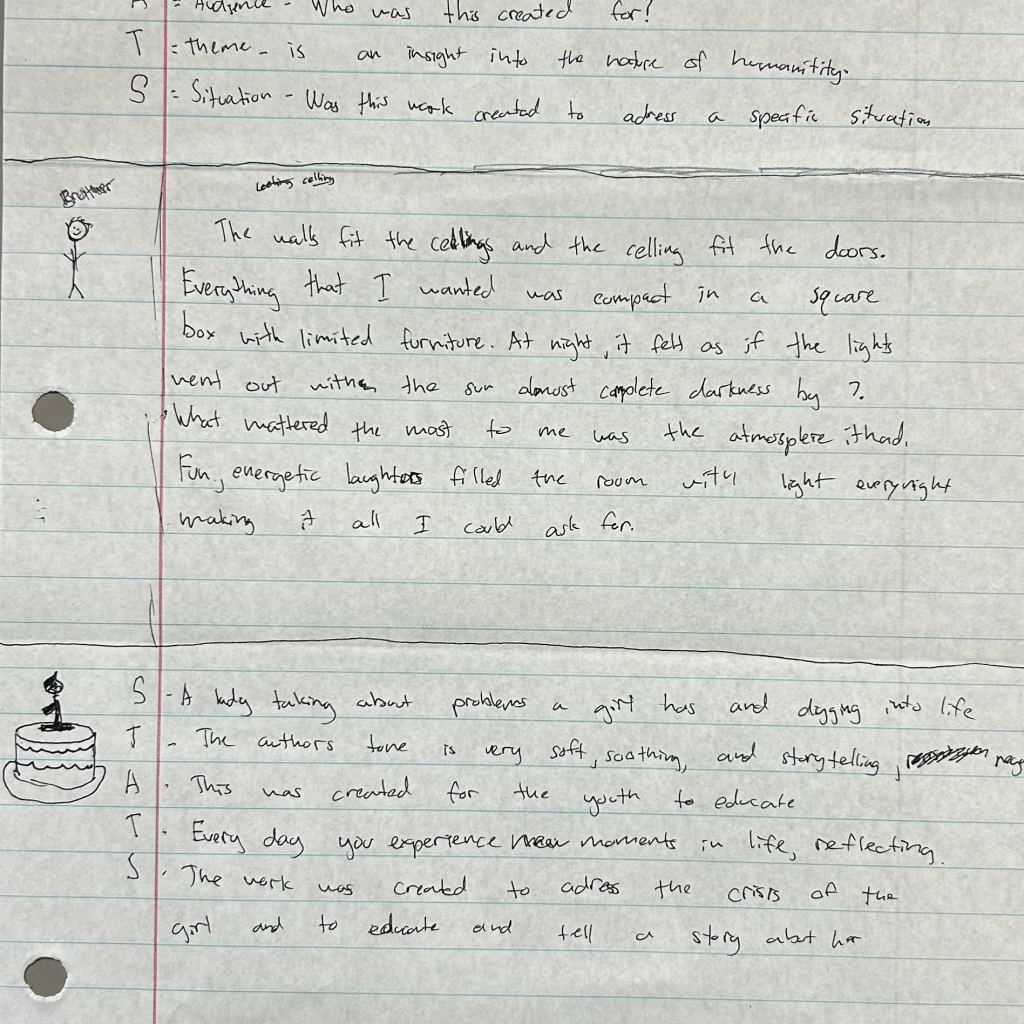 A = Audience - Who was this created for?
T = theme - is an insight into the nature of humanitity.
S = Situation - Was this work created to adress a specific situation
Brother
celling
The walls fit the cellings and the celling fit the doors.
Everything that I wanted was compact in a square
box with limited furniture. At night, it felt as if the lights
went out with the sun almost complete darkness by 7.
What mattered the most to me was the atmosplere ithad.
Fun, energetic laughters filled the room with light everynight
making it all I could ask for.
S - A lady talking about problems a girl has and digging into life
T - The authors tone is very soft, soothing, and storytelling,
A - This was created for the youth to educate
T - Every day you experience new moments in life, reflecting.
S - The work was created to adress the crisis of the
girl and to educate and tell a story abot her